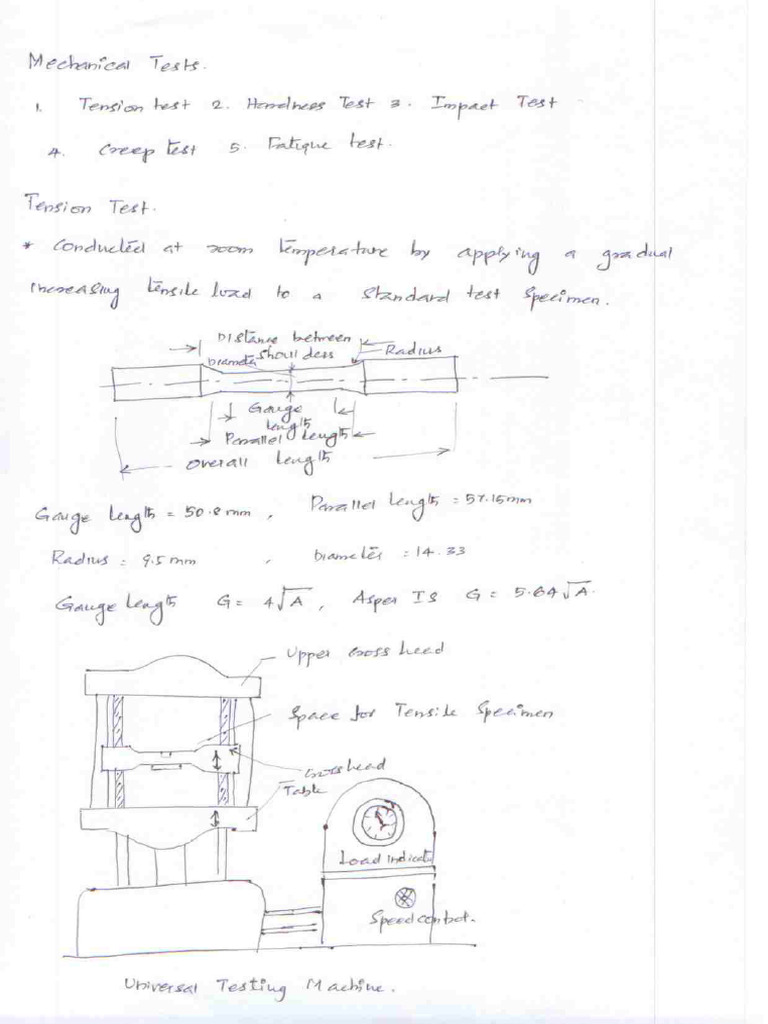 Mechanical Tests.
1. Tension test 2. Hardness Test 3. Impact Test
4. Creep test 5. Fatigue test.
Tension Test.
* Conducted at room temperature by applying a gradual
increasing tensile load to a standard test specimen.
Distance between
shoulders
Radius
Diameter
Gauge
length
Parallel length
Overall length
Gauge length = 50.8 mm, Parallel length = 57.15mm
Radius = 9.5 mm, Diameter = 14.33
Gauge length G = 4√A, As per IS G = 5.64√A.
Upper cross head
Space for Tensile Specimen
Cross head
Table
Load indicator
Speed control.
Universal Testing Machine.